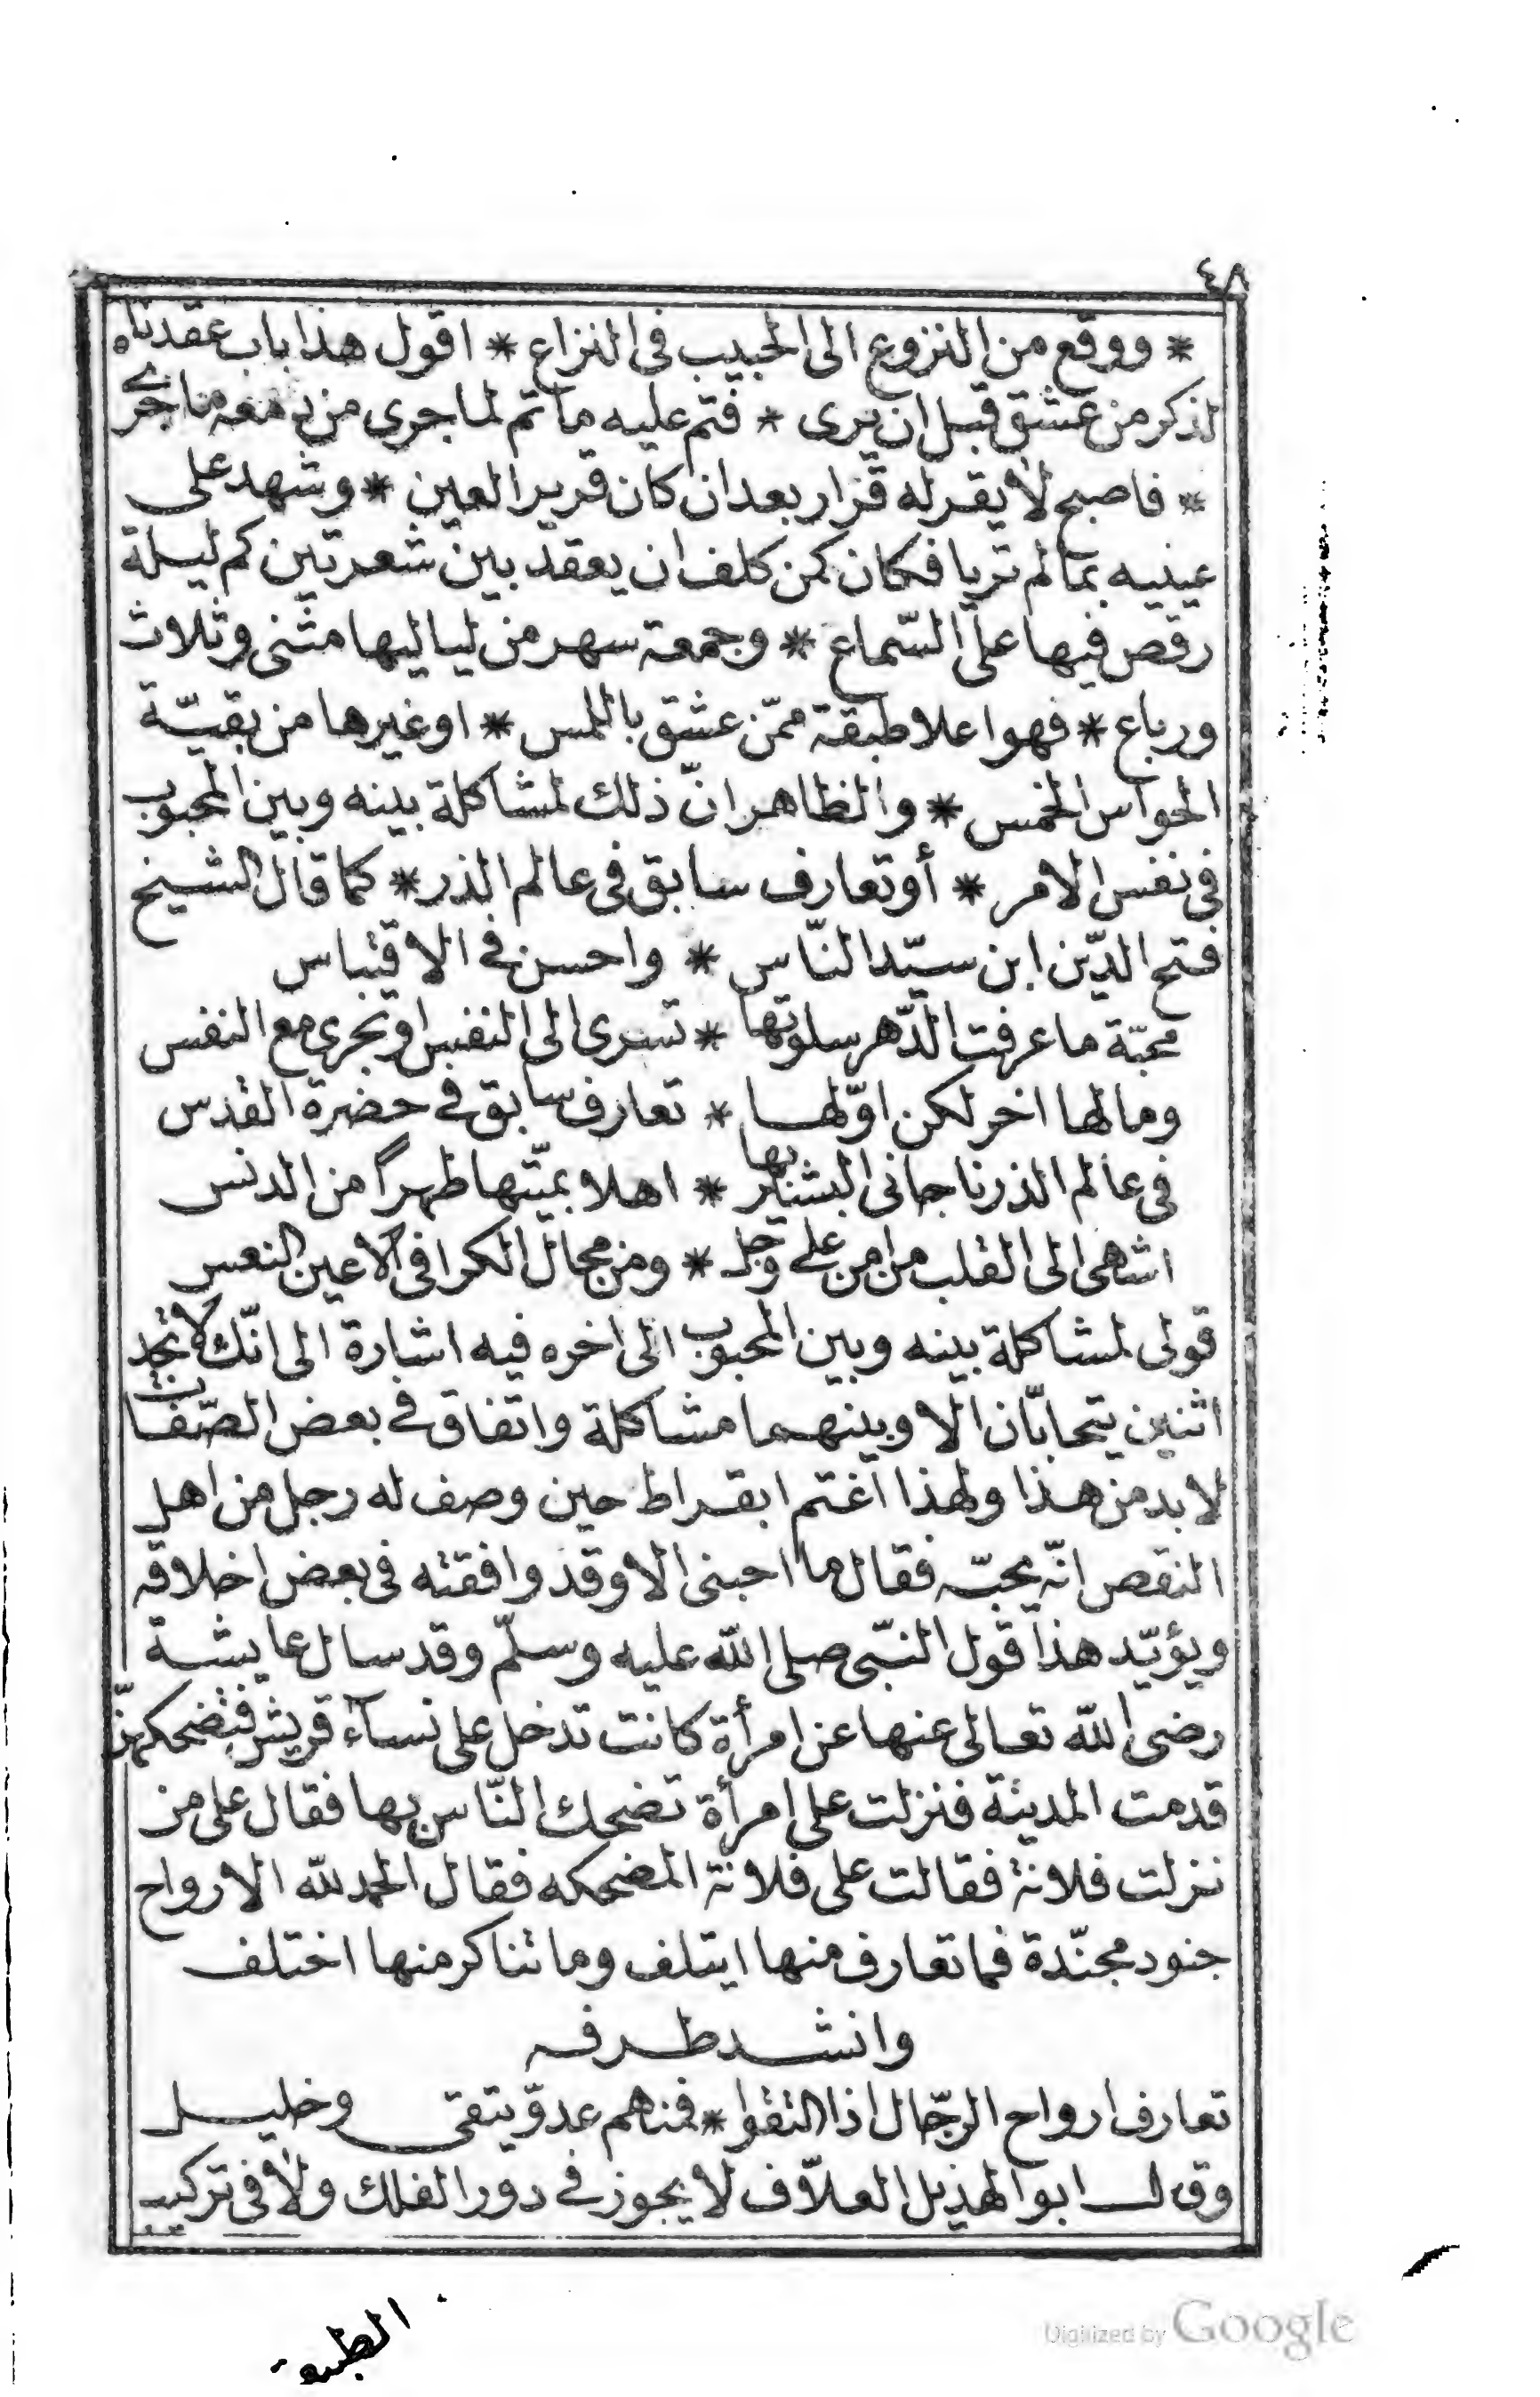 ٤٨
* ووقع من النزوع الى الحبيب فى النزاع * اقول هذا باب عقدناه
لذكر من عشق قبل ان يرى * فتم عليه ما تم لما جرى من دمعه ما جرى
* فاصبح لا يقر له قرار بعد ان كان قرير العين * وشهد على
عينيه بمالم تريا فكان كمن كلف ان يعقد بين شعرتين كم ليلة
رقص فيها على السّماع * وجمعة سهر من لياليها مثنى وثلاث
ورباع * فهو اعلا طبقة ممّن عشق باللمس * او غيرها من بقيّة
الحواس الخمس * والظاهر انّ ذلك لمشاكلة بينه وبين المحبوب
فى نفس الامر * أو تعارف سابق فى عالم الذر * كما قال الشيخ
فتح الدّين ابن سيّد النّاس * واحسن فى الاقتباس
محبّة ما عرفت الدّهر سلوتها * تسرى الى النفس او تجرى مع النفس
وما لها اخر لكن اوّلها * تعارف سابق فى حضرة القدس
فى عالم الذر ناجانى البشير بها * اهلا بمثّها طهراً من الدنس
اشهى الى القلب من امن على وجل * ومن مجال الكرا فى الاعين النعس
قولى لمشاكلة بينه وبين المحبوب الى اخره فيه اشارة الى انّك لا تجد
اثنين يتحابّان الا وبينهما مشاكلة واتفاق فى بعض الصّفات
لا بد من هذا ولهذا اغتم ابقراط حين وصف له رجل من اهل
النقص انّه يحبّه فقال ما احبنى الا وقد وافقته فى بعض اخلاقه
ويؤيّد هذا قول النبّى صلى الله عليه وسلّم وقد سال عايشة
رضى الله تعالى عنها عن امرأة كانت تدخل على نسآء قريش فتضحكهنّ
قدمت المدينة فنزلت على امرأة تضحك النّاس بها فقال على من
نزلت فلانة فقالت على فلانة المضحكه فقال الحمد لله الارواح
جنود مجنّدة فما تعارف منها ايتلف وما تناكر منها اختلف
وانشد طرفه
تعارف ارواح الرجّال اذا التقوا * فمنهم عدوّ يتقى وخليل
وقال ابو الهذيل العلّاف لا يجوز فى دور الفلك ولا فى تركيب
الطبيعة
Digitized by Google